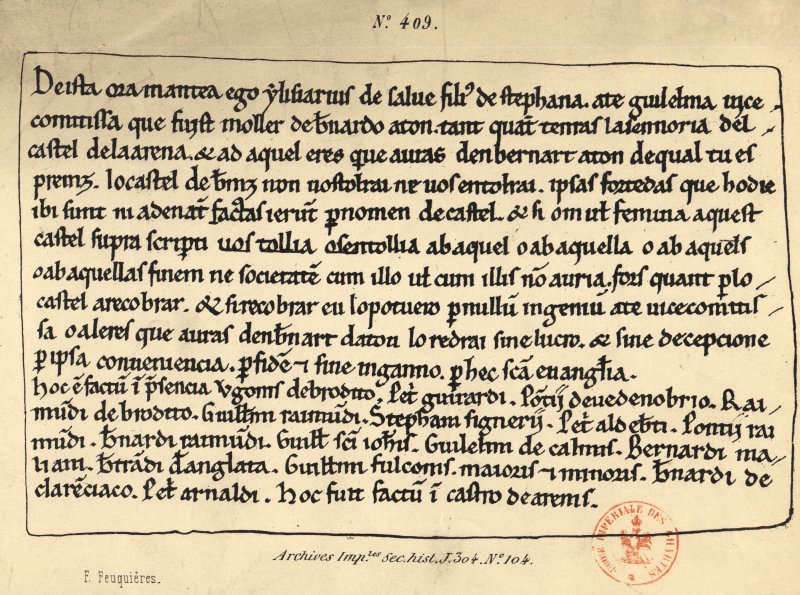 Nº 409.
De ista ora mantea ego ylisiarius de salue filiꝰ de stephana. ate guilelma uice
comitissa que fuist moller de b̄nardo aton. tant quat̄ terras la sennoria del
castel de la arena. & ad aquel eres que auras den bernart aton de qual tu es
prems. lo castel de b̄mz non uos tolrai ne uos en tolrai. ipsas fortedas que hodie
ibi sunt ni adenat̄ factas ierunt̄ ꝑ nomen de castel. & si om ul̄ femina aquest
castel supra scripti uos tollia o sen tollia ab aquel o ab aquella o ab aquels
o ab aquellas finem ne societatē cum illo ul̄ cum illis nō auria. fors quant ꝑ lo
castel a recobrar. & si recobrar eu lo potuero ꝑ nulliū ingeniū ate uicecomitis
sa o al eres que auras den b̄nart daton lo redrai sine lucro. & sine decepcione
ꝑ ipsa conueniencia. ꝑ fidē ⁊ sine inganno. ꝑ hec scā euanglia.
hoc ē factū ī p̄sencia vgonis de brodito. Pet̄ guirardi. Pōtij de uedenobrio. Rai
mūdi de brodito. Guillmi raimūdi. Stephani signerij. Pet̄ aldeb̄ti. Pontij rai
mūdi. b̄nardi raimūdi. Guill̄ scī ioħis. Guilelmi de calmis. Bernardi ma
liani. b̄trādi danglata. Guillmi fulconis. maioris ⁊ minoris. b̄nardi de
clarēciaco. Pet̄ arnaldi. hoc fuit factū ī castro de arenis.
Archives Imp.les Sec. hist. J. 304. Nº 104.
F. Feuquières.
ÉCOLE IMPÉRIALE DES CHARTES